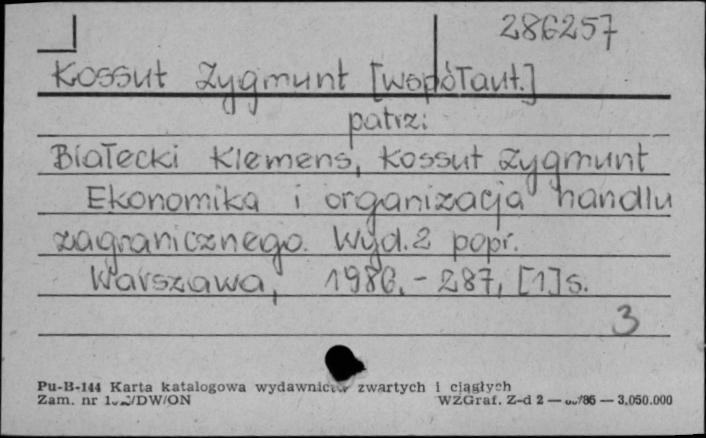 286257
Kossut Zygmunt [współaut.]
patrz:
Białecki Klemens, Kossut Zygmunt
Ekonomika i organizacja handlu
zagranicznego. Wyd. 2 popr.
Warszawa, 1986. - 287, [1] s.
3
Pu-B-144 Karta katalogowa wydawnictw zwartych i ciągłych
Zam. nr /DW/ON WZGraf. Z-d 2 — /86 — 3.050.000